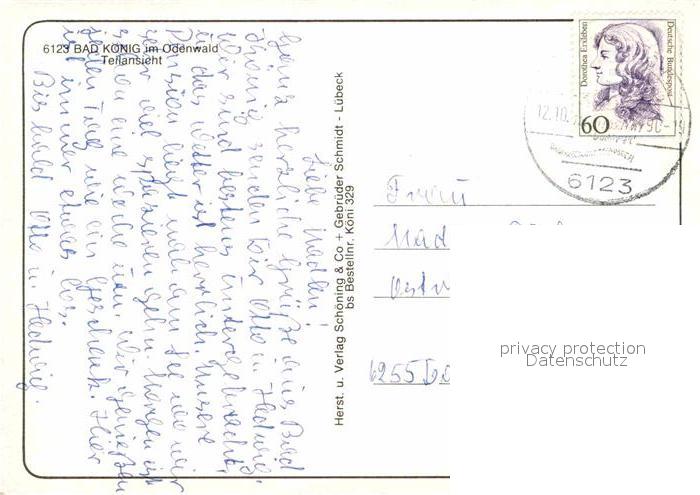 6123 BAD KÖNIG im Odenwald
Teilansicht
Liebe
Ganz herzliche Grüße aus Bad
König senden Dir Otto u. Hedwig.
Wir sind bestens untergebracht,
u. das Wetter ist herrlich. Unsere
Pension liegt nah am See wo wir
sehr viel spazieren gehn. Morgen ist
schon eine Woche um. Wir genießen
jeden Tag wie ein Geschenk. Hier
ist immer etwas los.
Bis bald Otto u. Hedwig.
Herst. u. Verlag Schöning & Co + Gebrüder Schmidt - Lübeck
bs Bestellnr. Köni 329
Dorothea Erxleben
Deutsche Bundespost
60
12.10.
6123
Frau
6255
privacy protection
Datenschutz